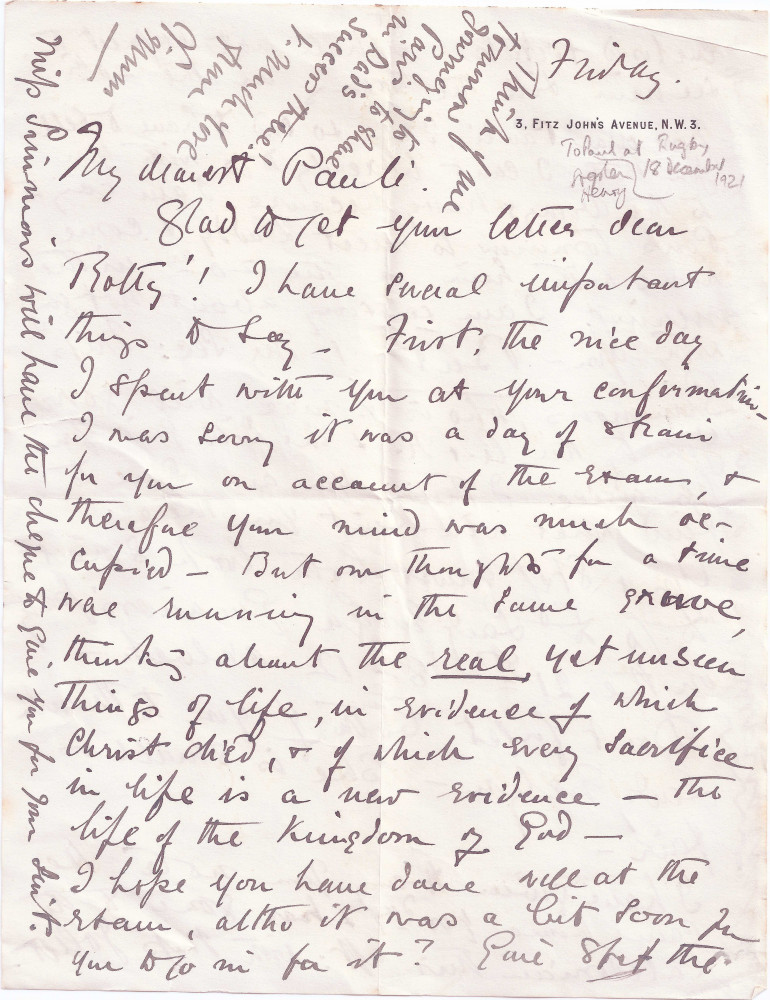 Friday.
3, FITZ JOHN'S AVENUE, N.W.3.
To Paul at Rugby
18 December
1921
Henry
My dearest Pauli.
Glad to get your letter dear
Botty! I have several important
things to say – First, the nice day
I spent with you at your confirmation –
I was sorry it was a day of strain
for you on account of the exam, &
therefore your mind was much oc-
cupied – But our thoughts for a time
was running in the same groove,
thinking about the real, yet unseen
things of life, in evidence of which
Christ died, & of which every sacrifice
in life is a new evidence – the
life of the Kingdom of God –
I hope you have done well at the
exam, altho it was a bit soon for
you to go in for it? the
Miss Simmons will have the cheque to give you for your suit.
Think of me
tomorrow
journeying to
Paris to share
in Dad's
success there!
much love
from